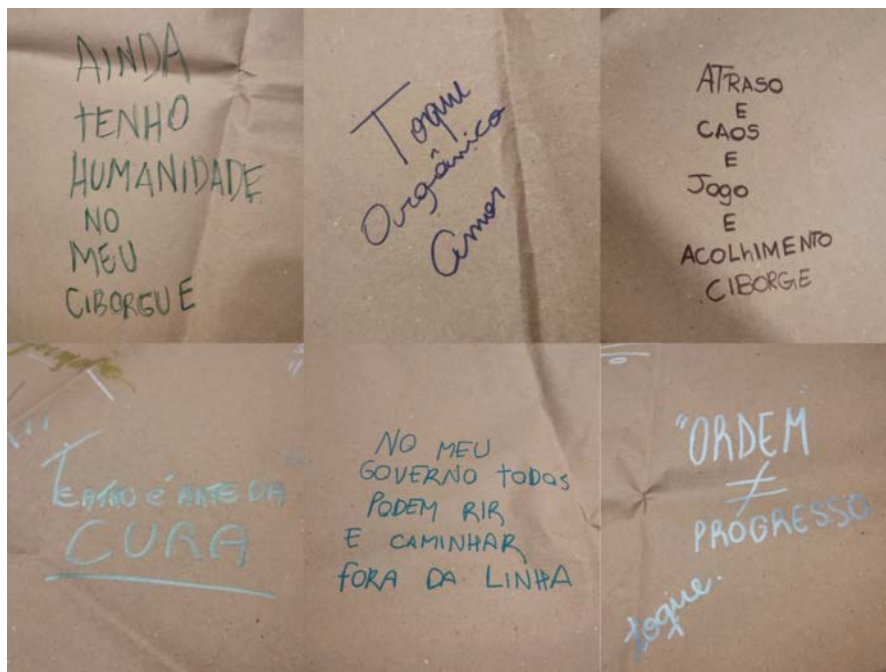 AINDA
TENHO
HUMANIDADE
NO
MEU
CIBORGUE
Toque
Orgânico
Amor
ATRASO
E
CAOS
E
Jogo
E
ACOLHIMENTO
CIBORGE
TEATRO É ARTE DA
CURA
NO MEU
GOVERNO TODOS
PODEM RIR
E CAMINHAR
FORA DA LINHA
"ORDEM"
≠
PROGRESSO
toque.